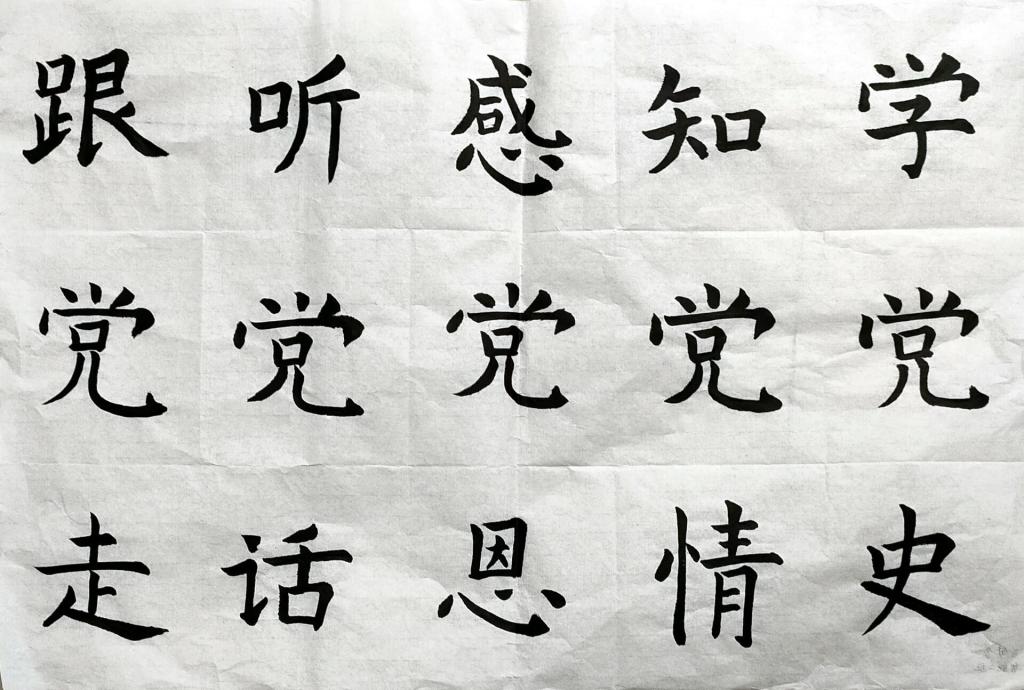 学党史
知党情
感党恩
听党话
跟党走